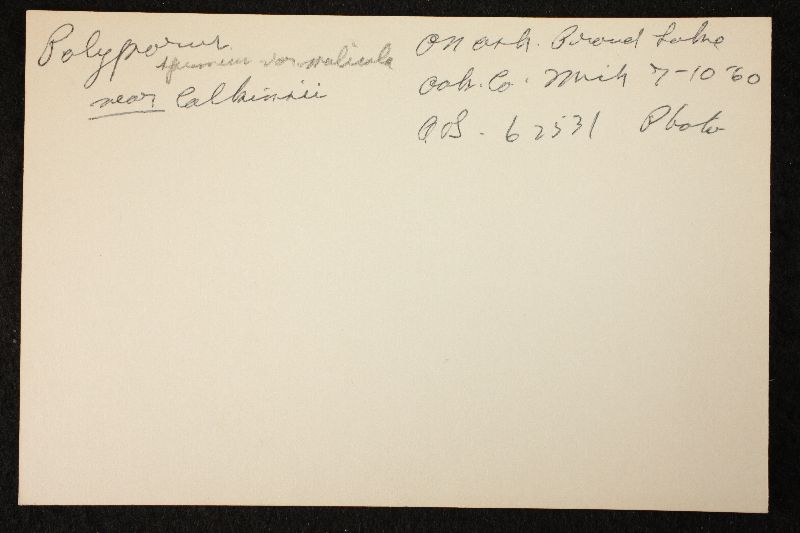 Polyporus
spumeus var malicola
near Calkinsii
On ash. Proud Lake
Oak. Co. Mich 7-10 '60
AHS. 62531 Photo